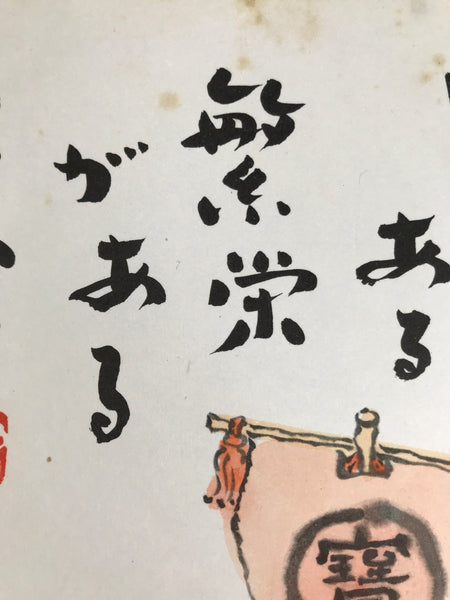 ある
繁栄
がある
寶